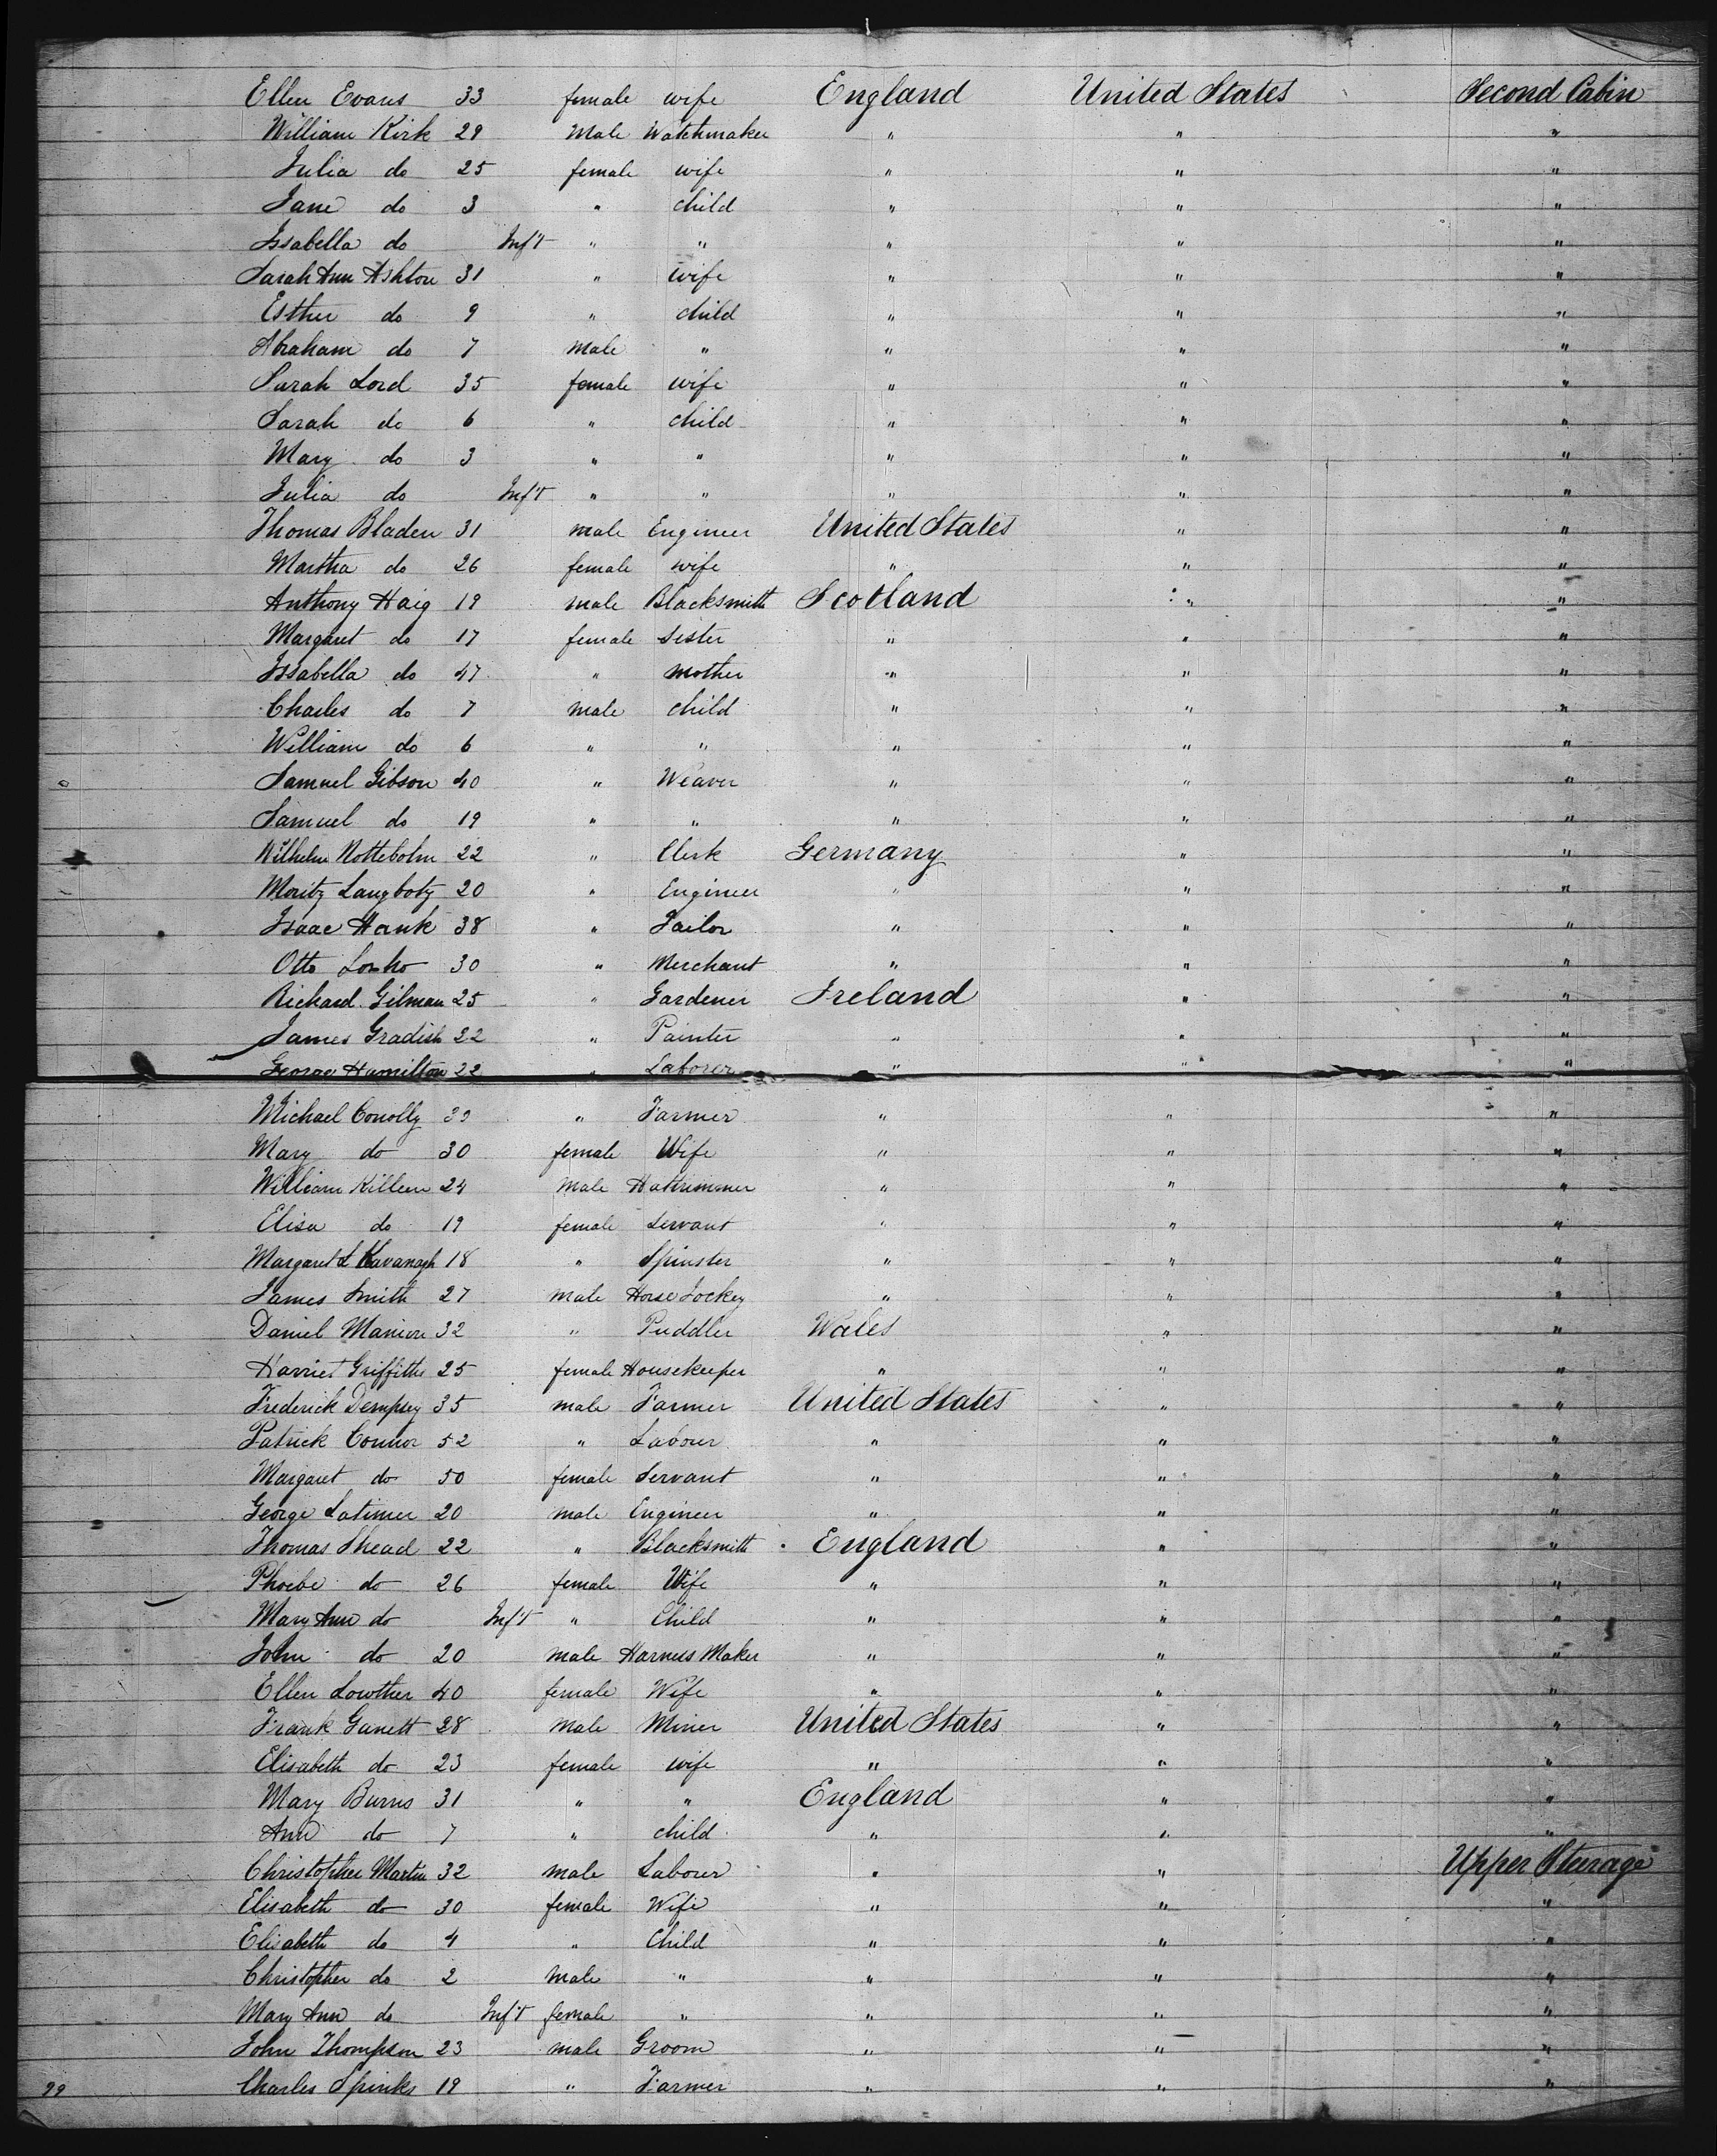 Ellen Evans 33 female wife England United States Second Cabin
William Kirk 29 Male Watchmaker " " "
Julia do 25 female wife " " "
Jane do 3 " child " " "
Issabella do Inf't " " " " "
Sarah Ann Ashton 31 " wife " " "
Esther do 9 " child " " "
Abraham do 7 Male " " " "
Sarah Lord 35 female wife " " "
Sarah do 6 " child " " "
Mary do 3 " " " " "
Julia do Inf't " " " " "
Thomas Bladen 31 male Engineer United States " "
Martha do 26 female wife " " "
Anthony Haig 19 male Blacksmith Scotland " "
Margaret do 17 female sister " " "
Issabella do 47 " mother " " "
Charles do 7 male child " " "
William do 6 " " " " "
Samuel Gibson 40 " Weaver " " "
Samuel do 19 " " " " "
Wilhelm Nottebohm 22 " Clerk Germany " "
Moritz 20 " Engineer " " "
Isaac Hank 38 " Tailor " " "
Otto 30 " Merchant " " "
Richard Gilman 25 " Gardener Ireland " "
James Gradish 22 " Painter " " "
George Hamilton 22 " Laborer " " "
Michael Conolly " Farmer " " "
Mary do 30 female Wife " " "
William Killeen 24 male Hattrimmer " " "
Elisa do 19 female servant " " "
Margaret L Kavanagh 18 " Spinster " " "
James Smith 27 male Horse Jockey " " "
Daniel Manion 32 " Puddler Wales " "
Harriet Griffiths 25 female Housekeeper " " "
Frederick Dempsey 35 male Farmer United States " "
Patrick Connor 52 " Labourer " " "
Margaret do 50 female Servant " " "
George Latimer 20 male Engineer " " "
Thomas Shead 22 " Blacksmith England " "
Phoebe do 26 female Wife " " "
Mary Ann do Inf't " Child " " "
John do 20 male Harness Maker " " "
Ellen Lowther 40 female Wife " " "
Frank Garrett 28 male Miner United States " "
Elisabeth do 23 female wife " " "
Mary Burns 31 " " England " "
Ann do 7 " child " " "
Christopher Martin 32 male Labourer " " Upper Steerage
Elisabeth do 30 female Wife " " "
Elisabeth do 4 " Child " " "
Christopher do 2 male " " " "
Mary Ann do Inf't female " " " "
John Thompson 23 male Groom " " "
99 Charles Spinks 19 " Farmer " " "